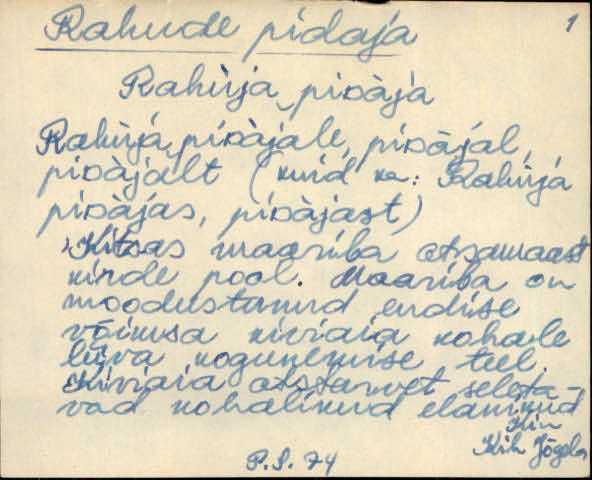 Rahude pidaja 1
Rahùja pioàja
Rahùja pioàjale, pioàjal,
pioàjalt (kuid ka: Rahùja
pioàjas, pioàjast)
Kitsas maariba otsamaast
kirde pool. Maariba on
moodustanud endise
võimsa kiviaia kohale
liiva kogunemise teel.
Kiviaia otstarvet seleta-
vad kohalikud elanikud
Kin
Kih Jõgela
P.S. 74